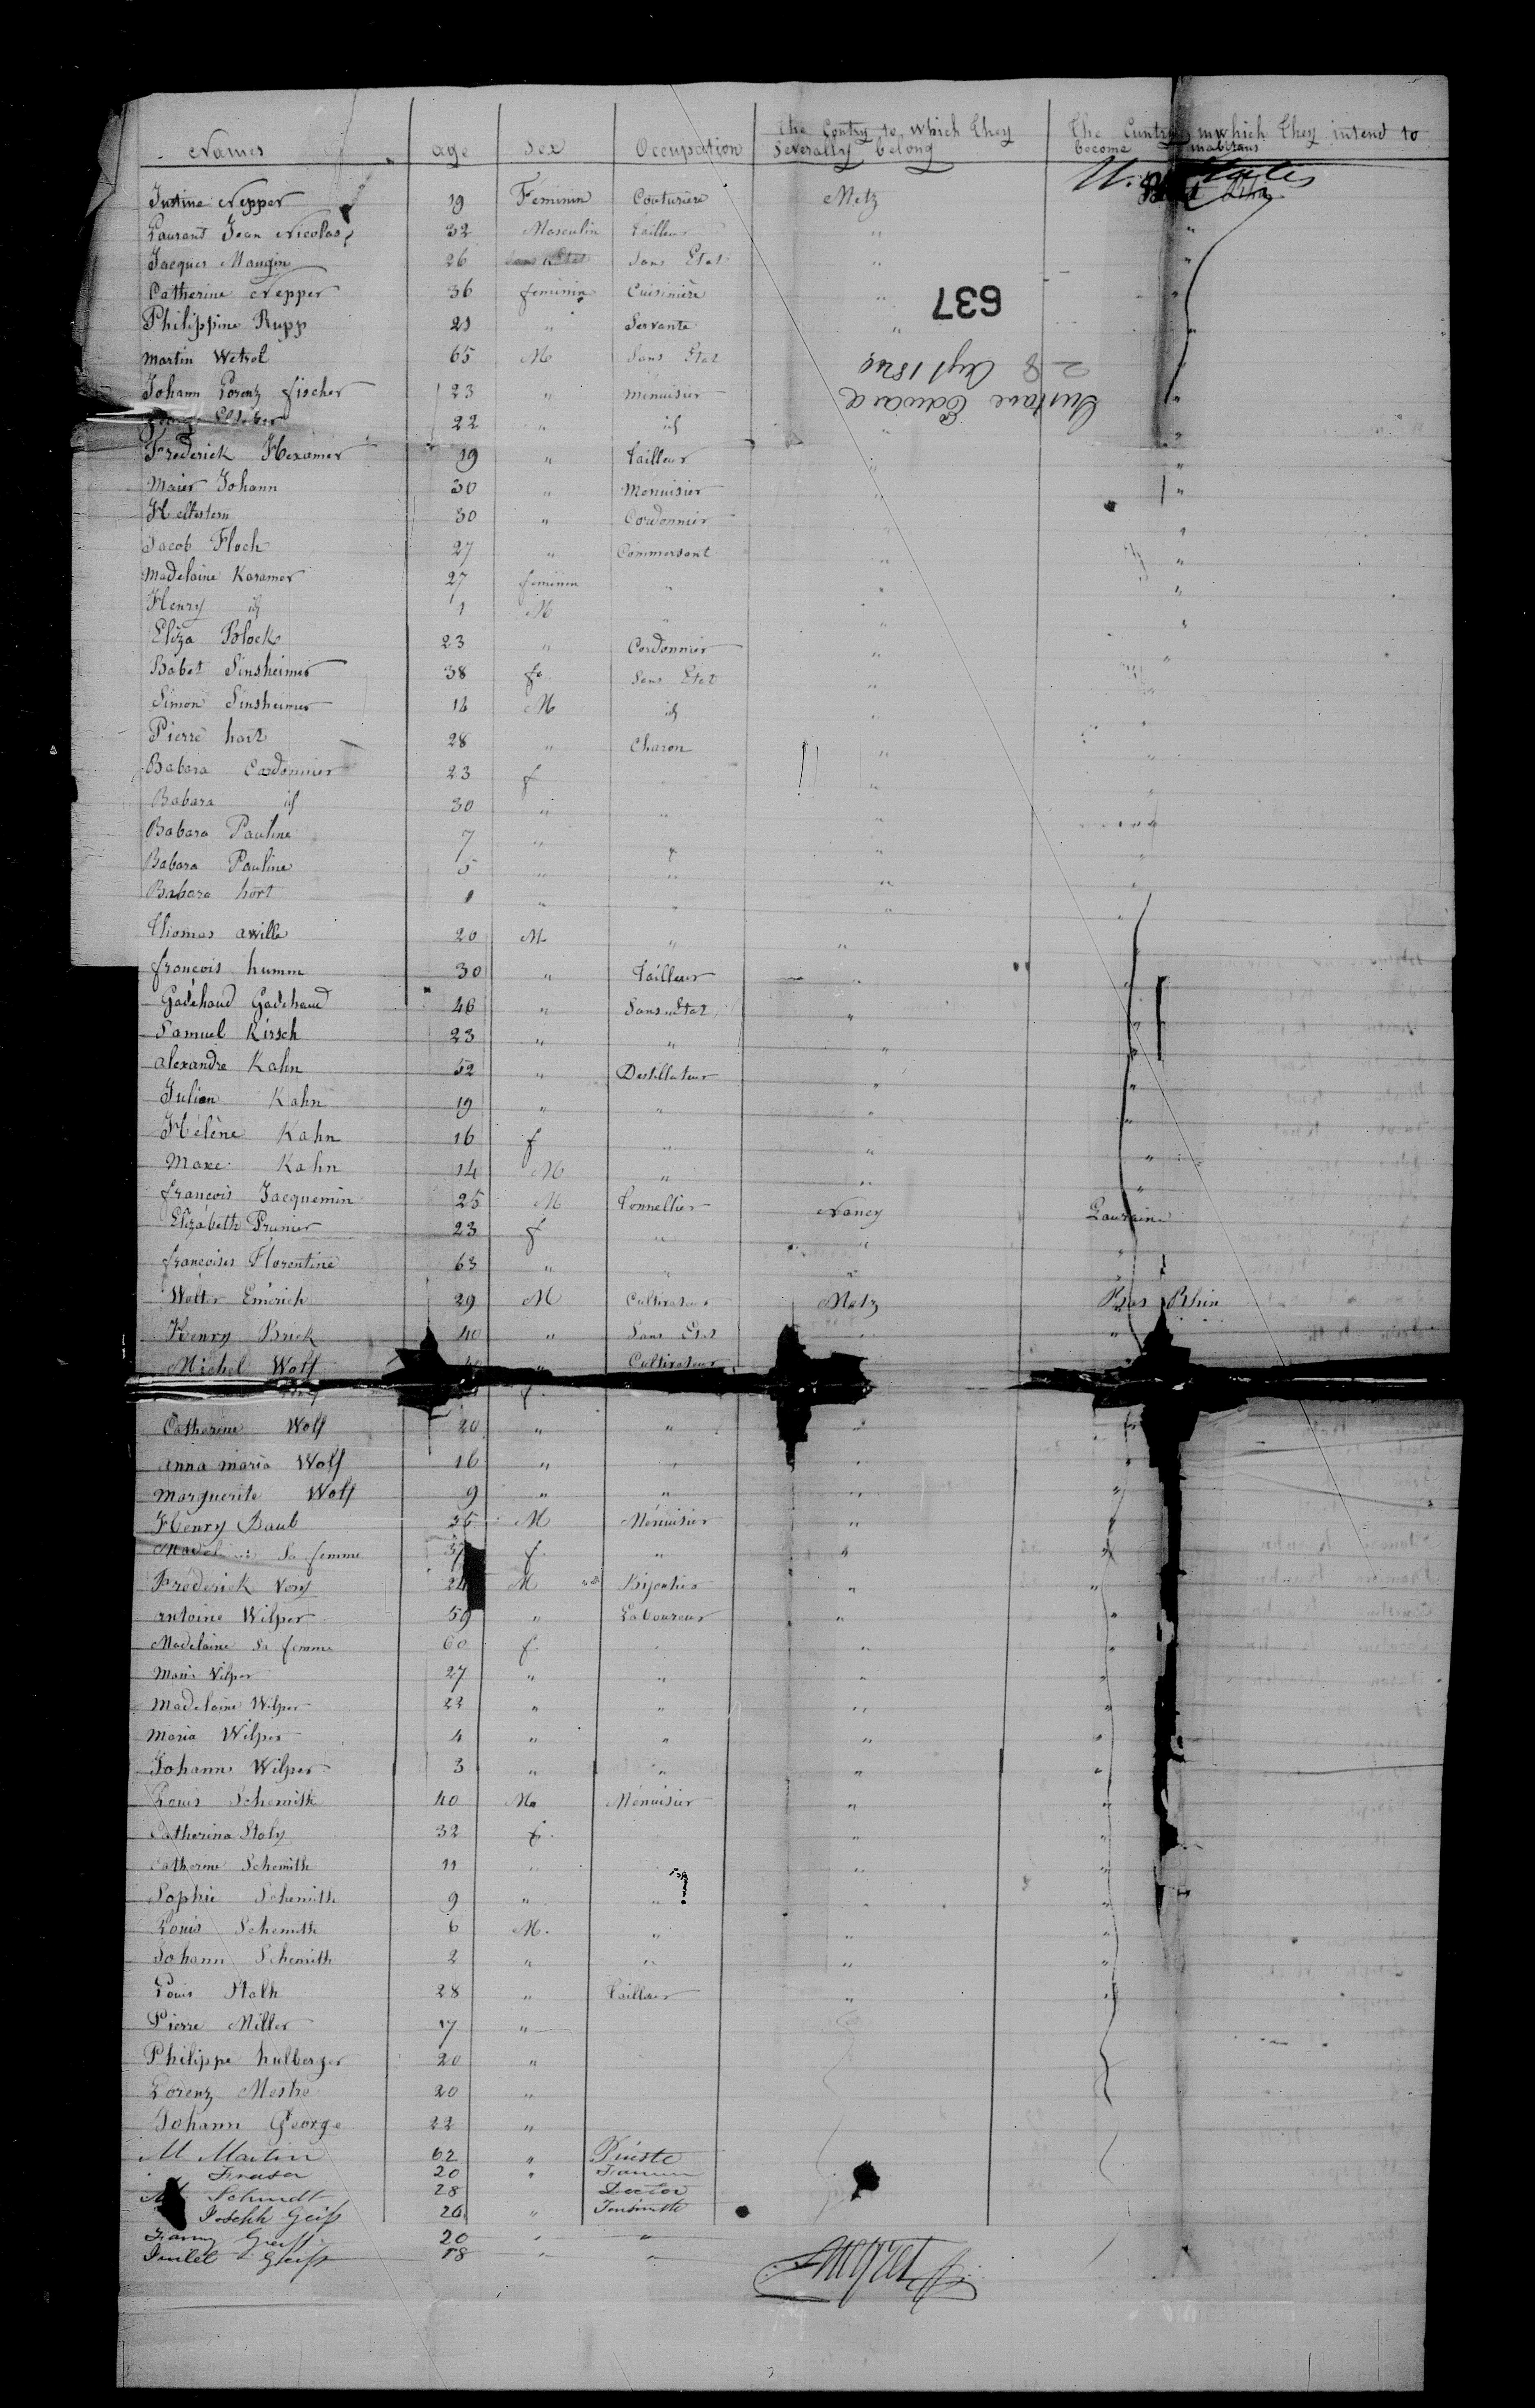 Names age Sex Occupation The Contry to which they severally belong The Cuntry in which they intend to become inabitans
U. States
Justine Nepper 19 Feminin Couturiere Metz
Laurant Jean Nicolas 32 Masculin tailleur " "
Jacques Mangin 26 Sans Etat " "
Catherine Nepper 36 feminin Cuisinière "
637
Philippine Rupp 21 " Servante "
Martin Wetzel 65 M Sans Etat
28 Augt 1840
Johann Lorenz fischer 23 " menuisier "
Gustave Edward
22 " id " "
Frederick Hexamer 19 " tailleur " "
Maier Johann 30 " Menuisier " "
30 " Cordonnier "
Jacob Floch 27 " Commersant " "
Madelaine Karamer 27 feminin " " "
Henry id 1 M " " "
Eliza Block 23 " Cordonnier " "
Babet Sinsheimer 38 fe Sans Etat " "
Simon Sinsheimer 14 M id " "
Pierre hort 28 " Charon " "
Babara Cordonnier 23 f " "
Babara id 30 " " "
Babara Pauline 7 " " "
Babara Pauline 5 " " " "
Babara hort 1 " " "
Thomas awille 20 M " "
françois humm 30 " Tailleur "
Gadehaud Gadehaud 46 " Sans Etat "
Samuel Kirsch 23 " " " "
alexandre Kahn 52 " Destillateur " "
Julien Kahn 19 " " " "
Hélène Kahn 16 f " "
Maxe Kahn 14 M " " "
françois Jacquemin 25 M Tonnellier Nancy Lauraine
Elizabeth Prunier 23 f " " "
françoises Florentine 63 " " " "
Walter Emerich 29 M Cultivateur Metz Bas Rhin
Henry Brick 40 " Sans Etat " "
Michel Wolf " Cultivateur
f.
Catherine Wolf 20 " " " "
anna maria Wolf 16 " " " "
Marguerite Wolf 9 " " " "
Henry Baub 35 M Ménuisier " "
Sa femme 37 f. " " "
Fréderick 24 M Bijoutier " "
antoine Wilper 59 " Laboureur " "
Madelaine Sa femme 60 f. " " "
Maria Vilper 27 " " " "
Madelaine Wilper 22 " " " "
Maria Wilper 4 " " " "
Johann Wilper 3 " " " "
Louis Schemith 40 M Ménuisier " "
Catherina Stoly 32 f. " "
Catherine Schemith 11 " " "
Sophie Schemith 9 " " "
Louis Schemith 6 M. " " "
Johann Schemith 2 " " " "
Louis Stalh 28 " Tailleur " "
Pierre Miller 17 "
Philippe hulberger 20 "
Lorenz Mestre 20 "
Johann George 22 "
M Martin 62 " Prieste
20 "
Schmidt 28 Doctor
Joseph Geiss 26 " Tinsmith
20 " "
Geiss 18 " "